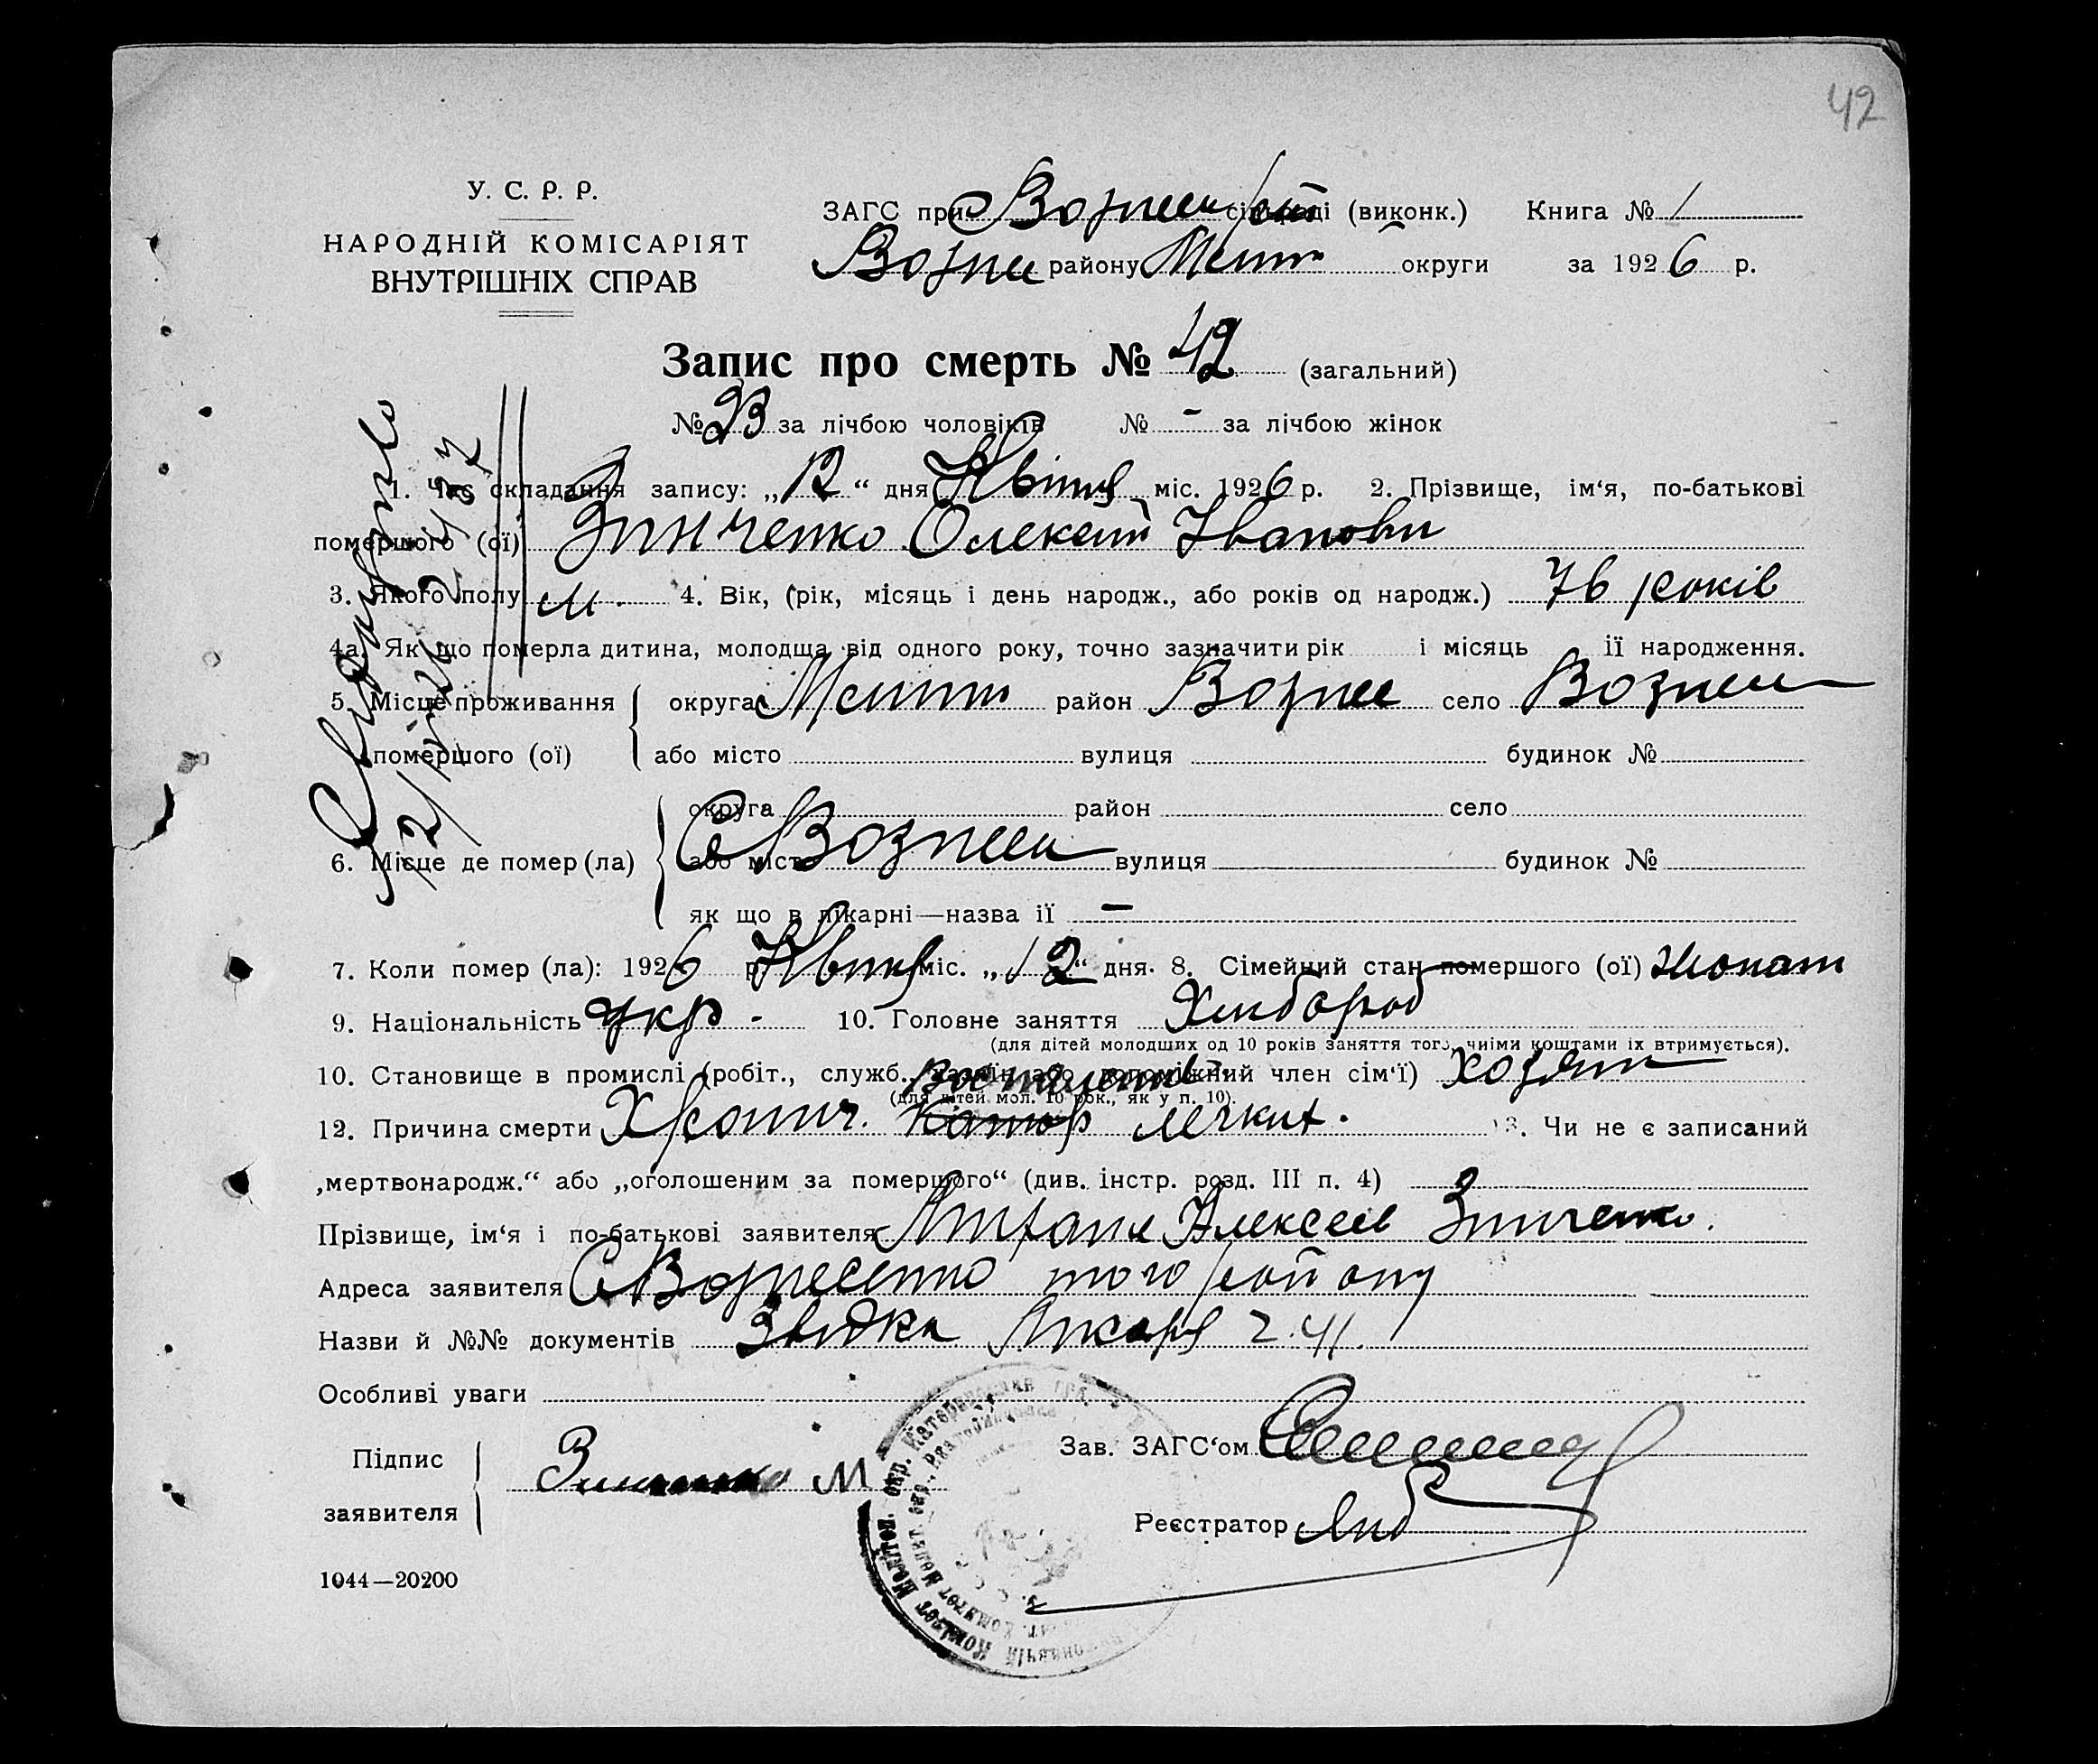 42
У. С. Р. Р.
НАРОДНІЙ КОМІСАРІЯТ
ВНУТРІШНІХ СПРАВ
ЗАГС при Вознесен сільраді (виконк.) Книга № 1
Вознес району Меліт округи за 1926 р.
Запис про смерть № 42 (загальний)
№ 23 за лічбою чоловіків № - за лічбою жінок
1. Час складання запису: „12“ дня Квітня міс. 1926 р. 2. Прізвище, ім‘я, по-батькові
помершого (ої) Зинченко Олексій Іванови
3. Якого полу м. 4. Вік, (рік, місяць і день народж., або років од народж.) 76 років
4а. Як що померла дитина, молодща від одного року, точно зазначити рік і місяць її народження.
5. Місце проживання округа Меліт район Вознес село Вознесен
помершого (ої) або місто вулиця будинок №
округа район село
6. Місце де помер (ла) або місто С Вознесен вулиця будинок №
як що в лікарні—назва її —
7. Коли помер (ла): 1926 р. Квітня міс. „12“ дня. 8. Сімейний стан помершого (ої) жонат
9. Національність Укр. 10. Головне заняття Хлібороб
(для дітей молодших од 10 років заняття того, чиїми коштами їх втримується).
10. Становище в промислі (робіт., служб., хазяїн або допоміжний член сім‘ї) хозяин
(для дітей мол. 10 рок., як у п. 10).
Воспаление
12. Причина смерти Хронич. легких. 13. Чи не є записаний
„мертвонародж.“ або „оголошеним за помершого“ (див. інстр. розд. III п. 4)
Прізвище, ім‘я і по-батькові заявителя Алексеев Зинченко.
Адреса заявителя С Вознесенка того району
Назви й №№ документів Звідка Лікаря ч. 41.
Особливі уваги
Підпис
заявителя
Зинченко М
Зав. ЗАГС‘ом
Реєстратор
1044—20200